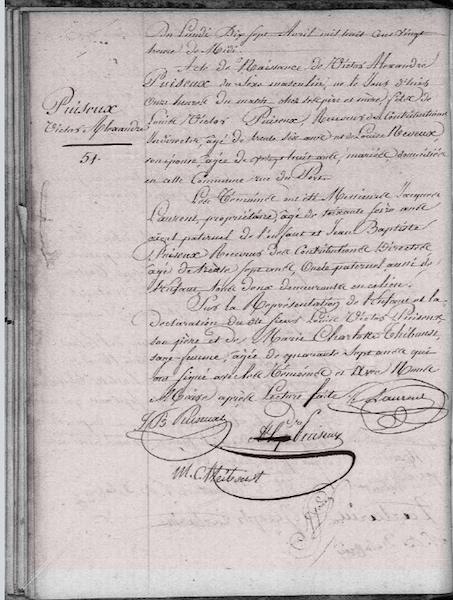 Puiseux
Victor Alexandre
51.
Du Lundi Dix Sept Avril mil huit cent vingt
heure de Midi.
Acte de Naissance de Victor Alexandre
Puiseux du Sexe masculin, né le Jour d'hier
Onze heures du matin chez ses père et mère, fils de
Louis Victor Puiseux, Receveur des Contributions
Indirectes, âgé de trente six ans et de Louise Neveux
son épouse, âgée de vingt huit ans, mariés domiciliés
en cette Commune rue du Port.
Les Témoins ont été Messieurs Jacques
Laurent, propriétaire, âgé de soixante ans
ayeul paternel de l'enfant et Jean Baptiste
Puiseux Receveur des Contributions Directes
âgé de trente sept ans, Oncle paternel aussi de
l'Enfant tous deux demeurants en ce lieu.
Sur la Représentation de l'Enfant et la
déclaration du dit sieur Louis Victor Puiseux
son père et de Marie Charlotte Thiboust,
sage-femme, âgée de quarante Sept ans qui
ont signé avec les Témoins et avec Nous
Maire après Lecture faite
J Laurent
J B Puiseux
Puiseux
M. C. Thiboust